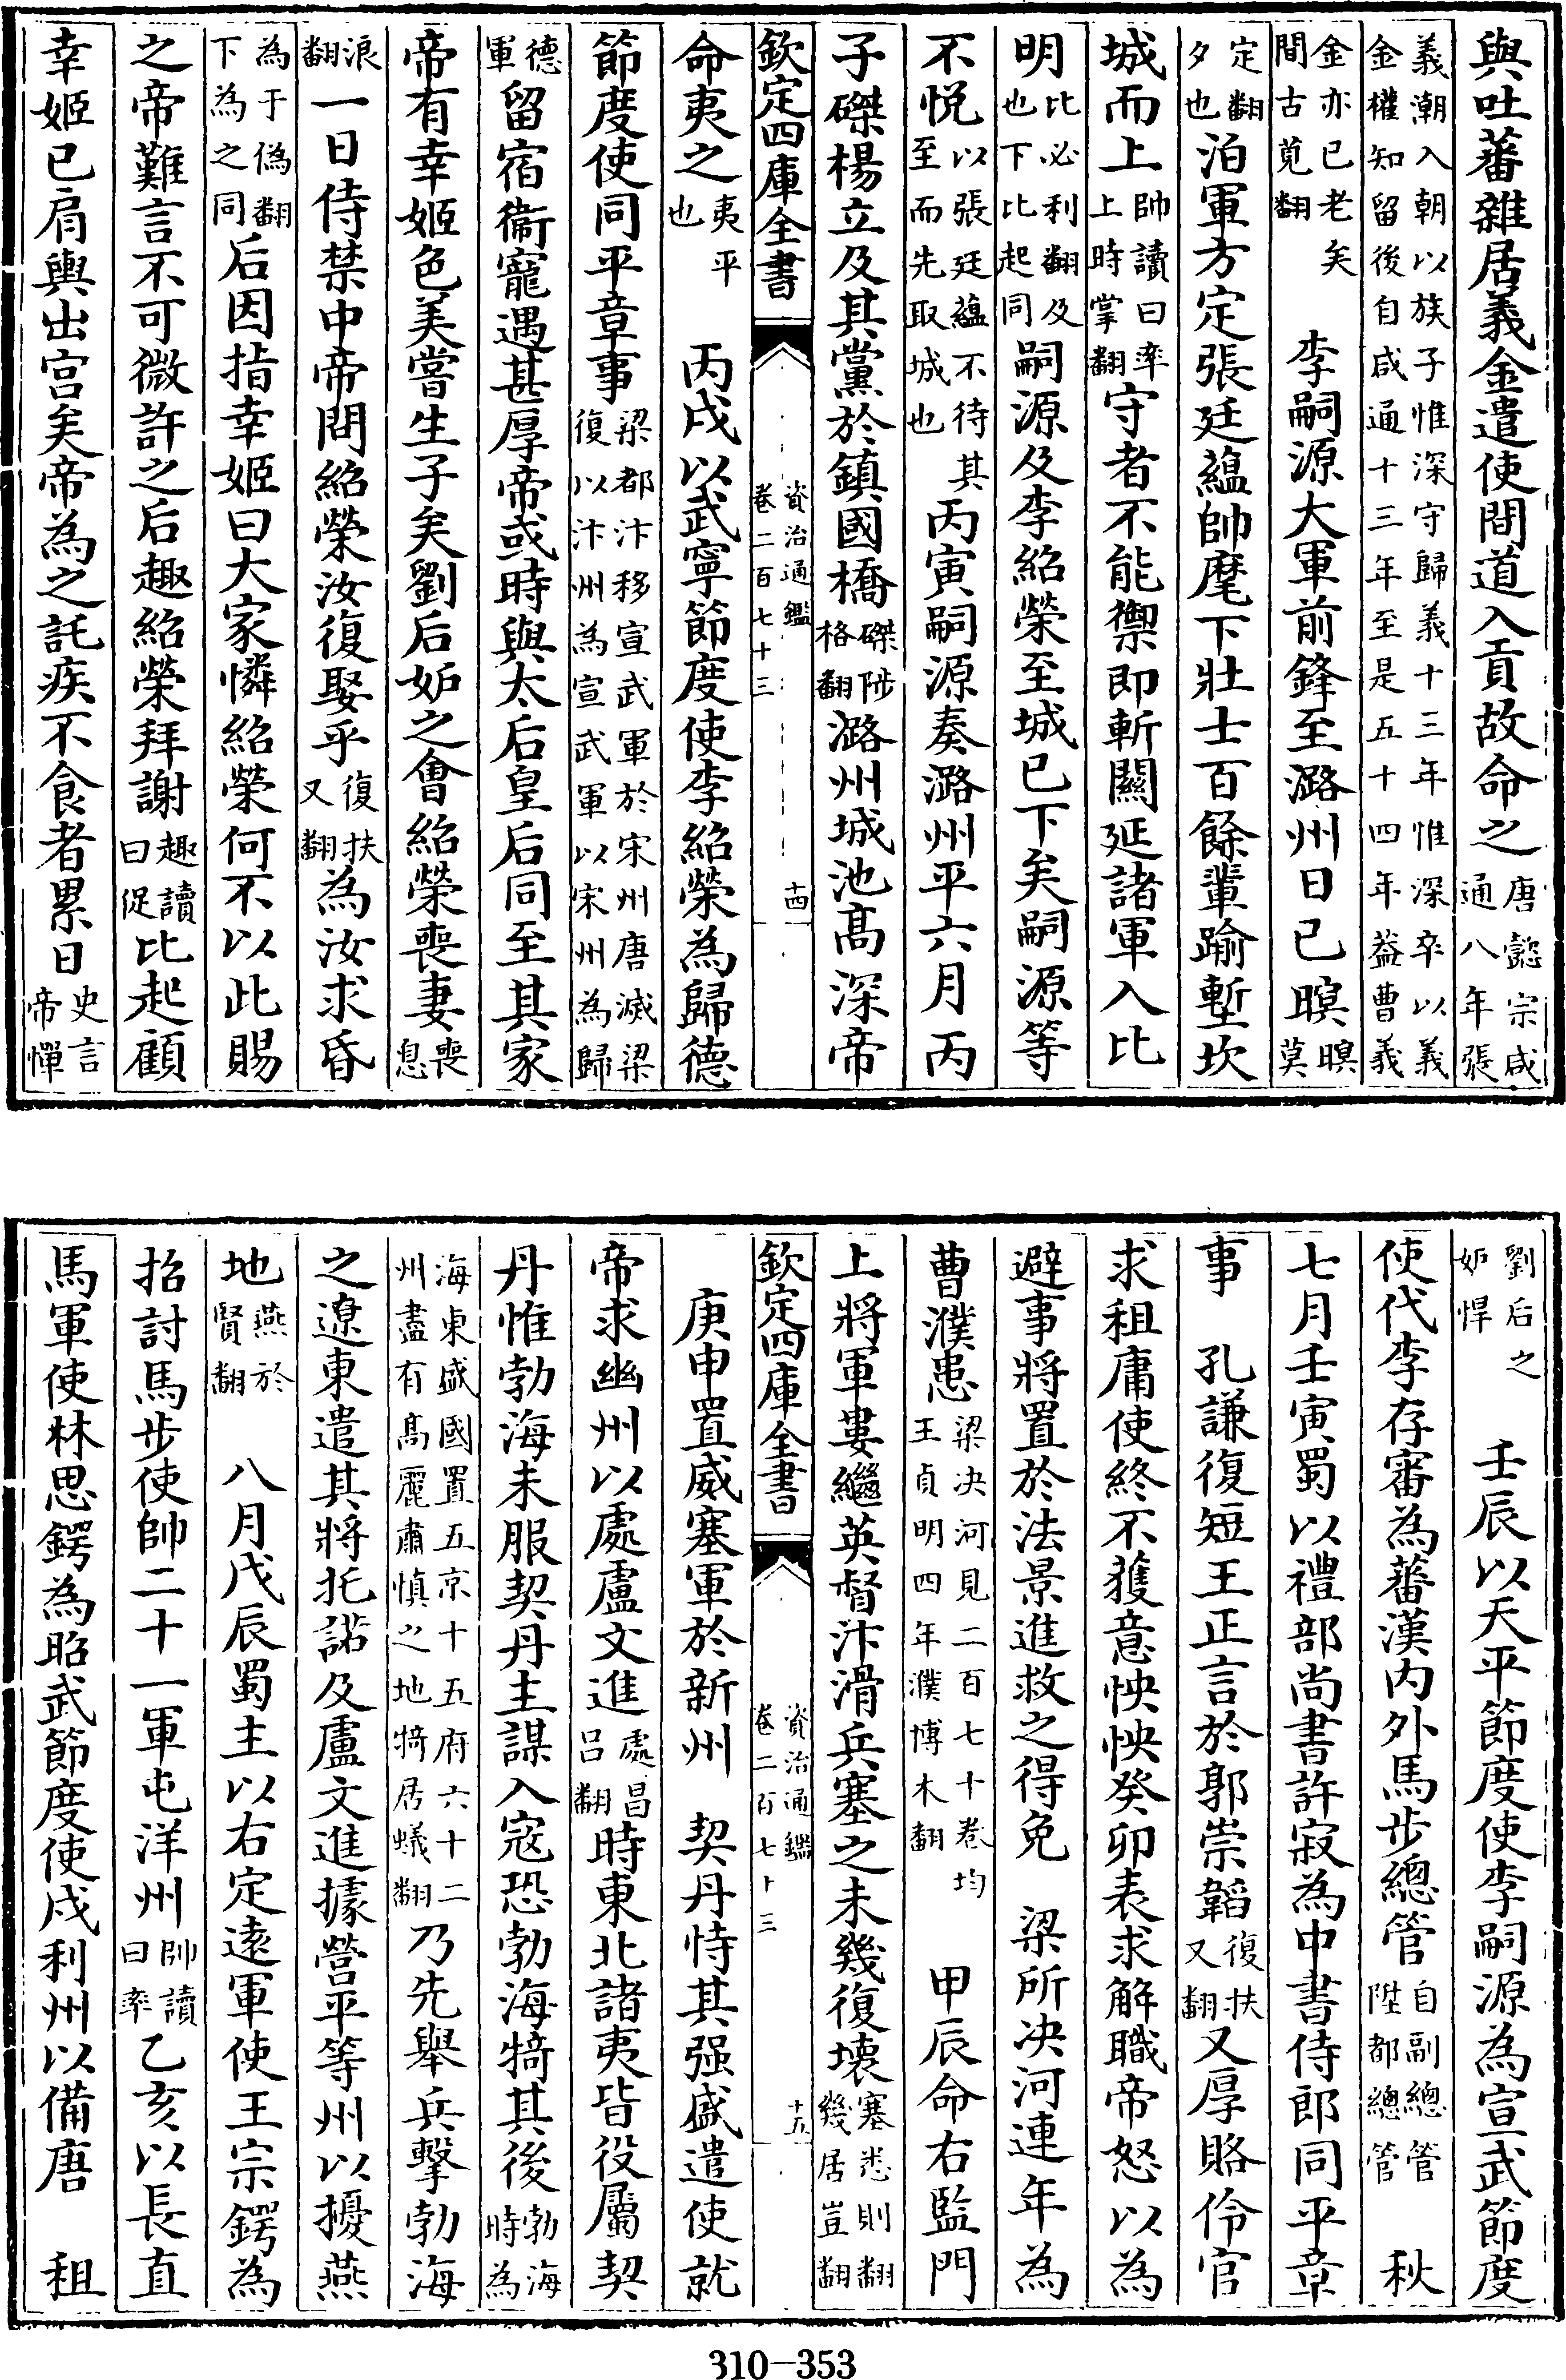 與吐蕃雜居義金遣使間道入貢故命之唐懿宗咸通八年張
義潮入朝以族子惟深守歸義十三年惟深卒以義金權知留後自咸通十三年至是五十四年葢曹義
金亦已老矣間古莧翻　李嗣源大軍前鋒至潞州日已暝暝莫
定翻夕也泊軍方定張廷蘊帥麾下壯士百餘輩踰塹坎
城而上帥讀曰率上時掌翻守者不能禦即斬關延諸軍入比
明比必利翻及也下比起同嗣源及李紹榮至城已下矣嗣源等
不悅以張廷蘊不待其至而先取城也丙寅嗣源奏潞州平六月丙
子磔楊立及其黨於鎮國橋磔陟格翻潞州城池髙深帝
欽定四庫全書　資治通鑑卷二百七十三　十四
命夷之夷平也　丙戌以武寧節度使李紹榮為歸德
節度使同平章事梁都汴移宣武軍於宋州唐滅梁復以汴州為宣武軍以宋州為歸
德軍留宿衞寵遇甚厚帝或時與太后皇后同至其家
帝有幸姬色美嘗生子矣劉后妬之會紹榮喪妻喪息
浪翻一日侍禁中帝問紹榮汝復娶乎復扶又翻為汝求昏
為于偽翻下為之同后因指幸姬曰大家憐紹榮何不以此賜
之帝難言不可微許之后趣紹榮拜謝趣讀曰促比起顧
幸姬已肩輿出宮矣帝為之託疾不食者累日史言帝憚
劉后之妬悍　壬辰以天平節度使李嗣源為宣武節度
使代李存審為蕃漢内外馬步總管自副總管陞都總管　秋
七月壬寅蜀以禮部尚書許寂為中書侍郎同平章
事　孔謙復短王正言於郭崇韜復扶又翻又厚賂伶官
求租庸使終不獲意怏怏癸卯表求解職帝怒以為
避事將置於法景進救之得免　梁所决河連年為
曹濮患梁决河見二百七十卷均王貞明四年濮博木翻　甲辰命右監門
上將軍婁繼英督汴滑兵塞之未幾復壞塞悉則翻幾居豈翻
欽定四庫全書　資治通鑑卷二百七十三　十五
庚申置威塞軍於新州　契丹恃其强盛遣使就
帝求幽州以處盧文進處昌吕翻時東北諸夷皆役屬契
丹惟勃海未服契丹主謀入寇恐勃海犄其後勃海時為
海東盛國置五京十五府六十二州盡有髙麗肅慎之地犄居蟻翻乃先舉兵擊勃海
之遼東遣其將托諾及盧文進據營平等州以擾燕
地燕於賢翻　八月戊辰蜀主以右定遠軍使王宗鍔為
招討馬步使帥二十一軍屯洋州帥讀曰率乙亥以長直
馬軍使林思鍔為昭武節度使戍利州以備唐　租
310—353